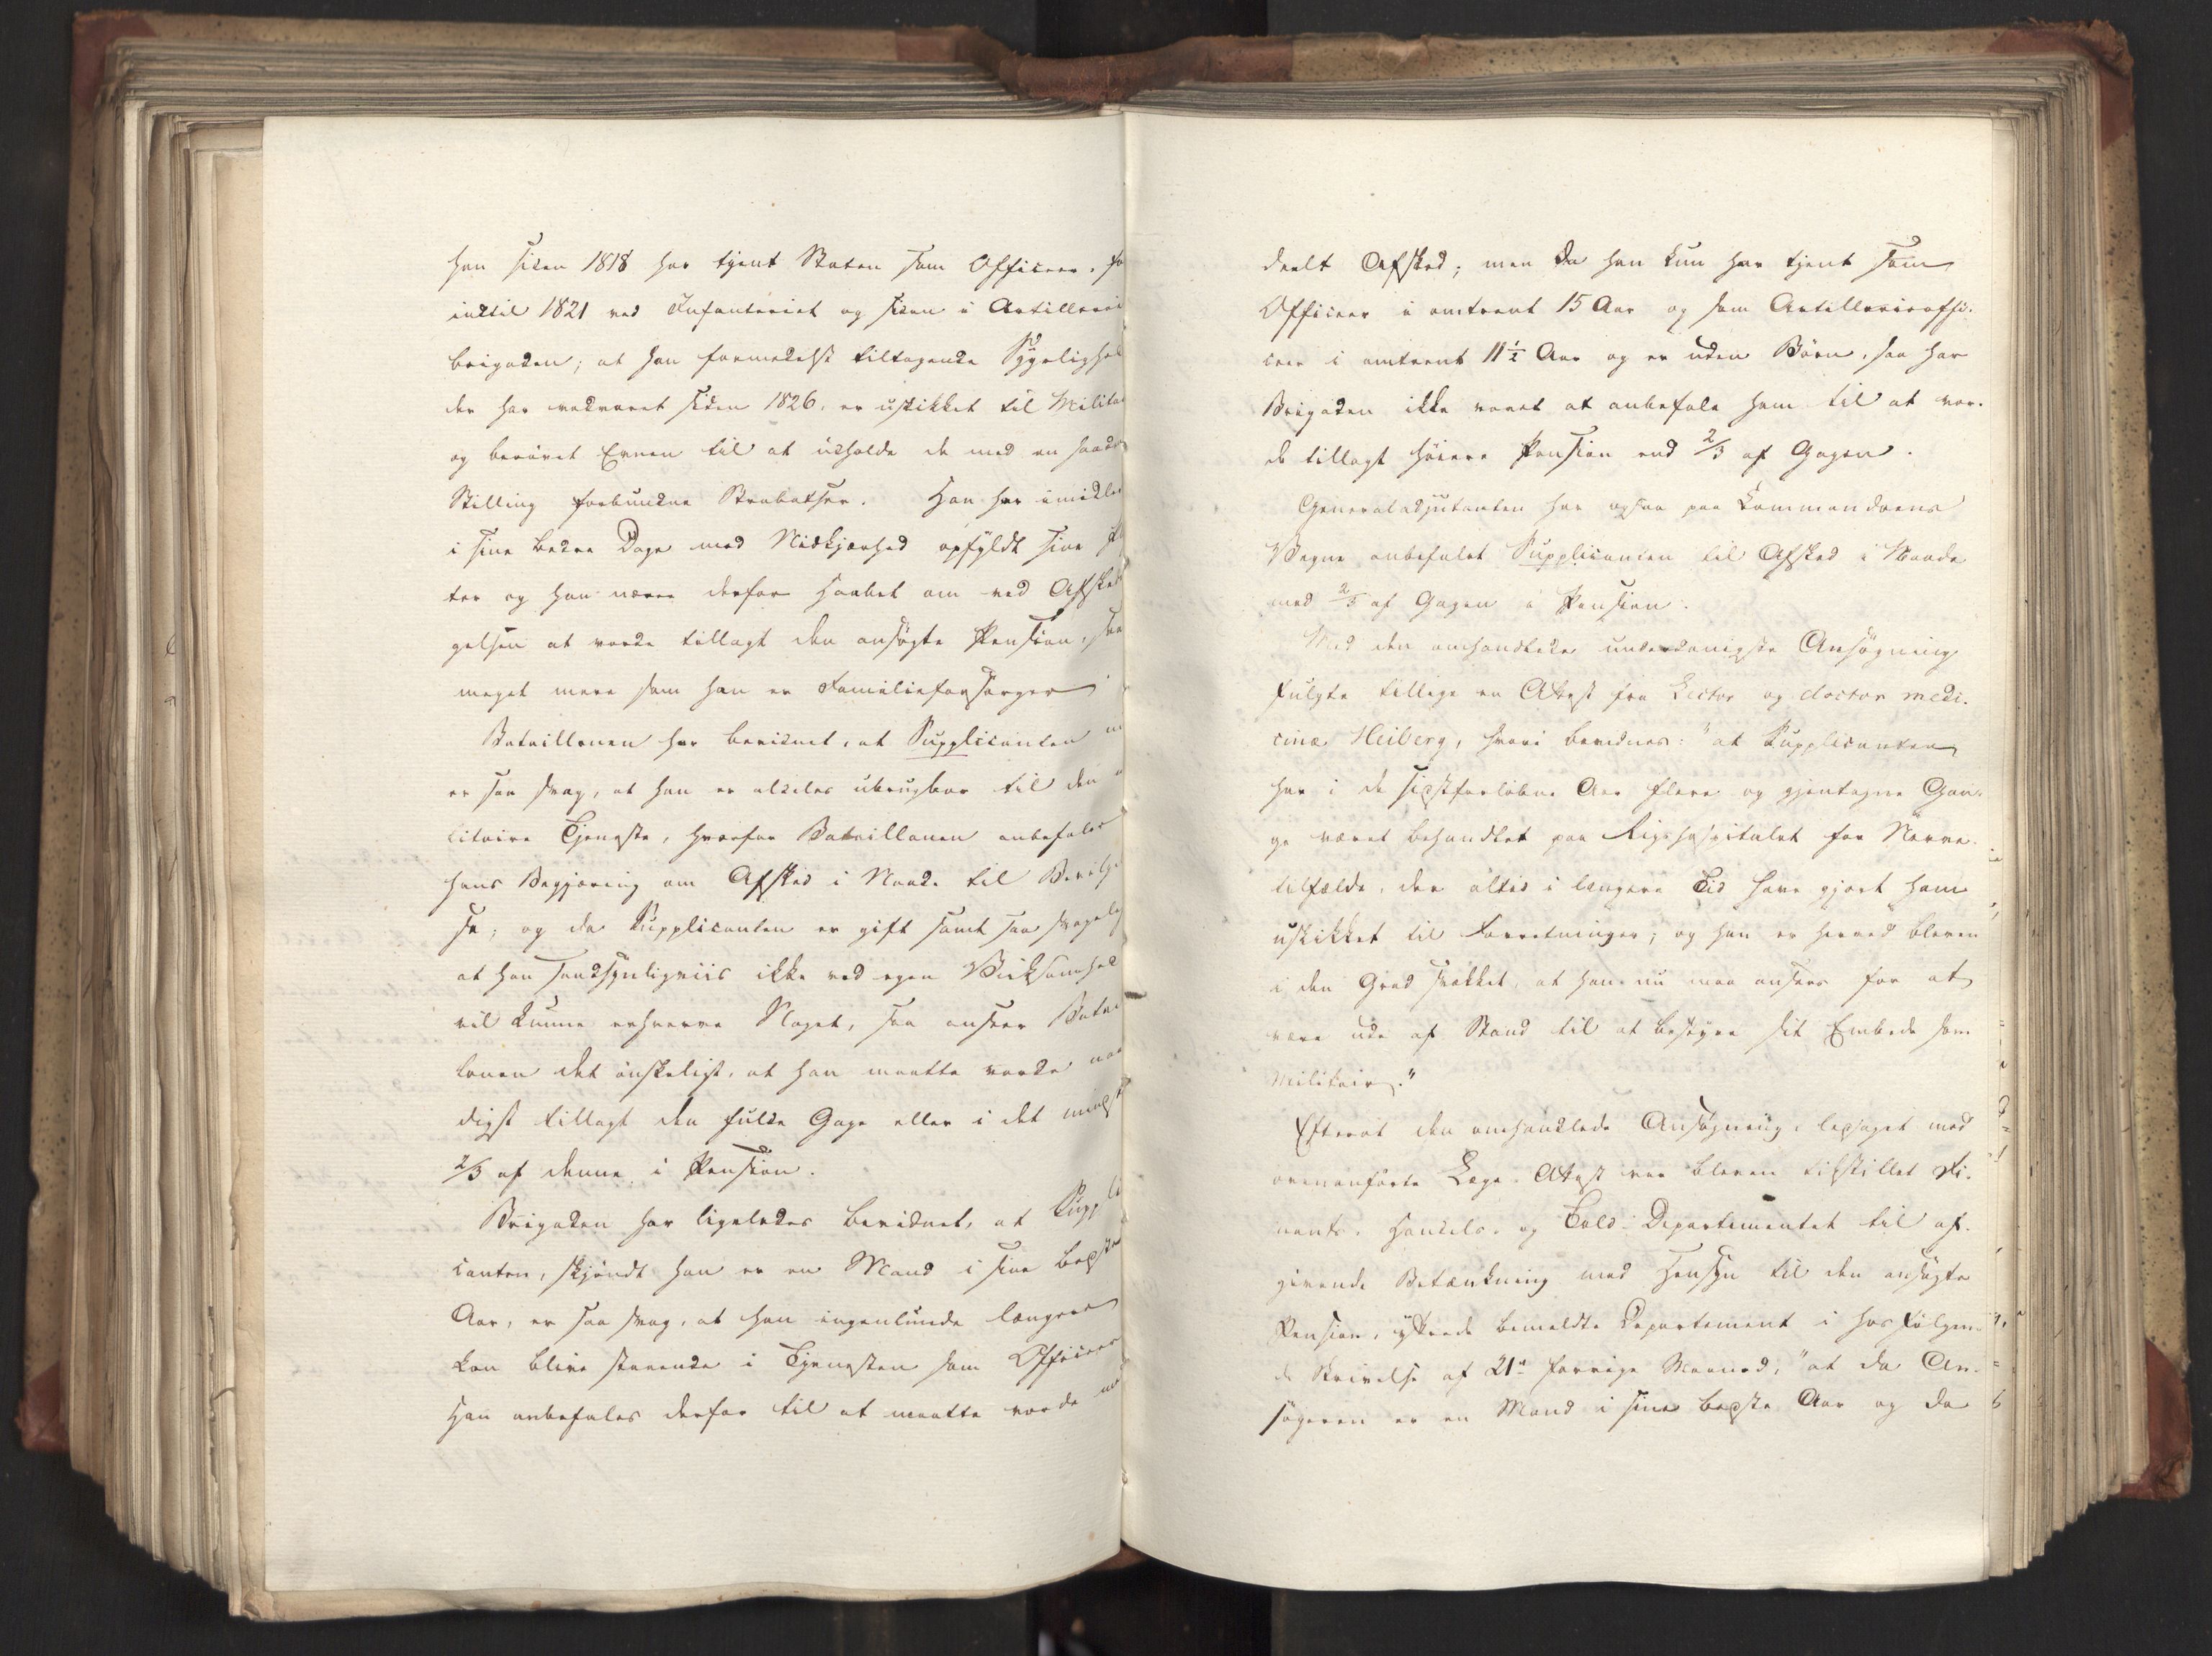 han siden 1818 har tjent Staten som Officeer,
indtil 1821 ved Infanteriet og siden i Artilleri
brigaden; at han formedelst tiltagende Sygelighed
der har vedvaret siden 1826, er uskikket til Militair
og berøvet Evnen til at udholde de med en saadan
Stilling forbundne Strabatser. Han har imidler
i sine bedre Dage med Nidkjærhed opfyldt sine
ter og han nærer derfor Haabet om ved Afske
gelsen at vorde tillagt den ansøgte Pension, saa
meget mere som han er Familieforsørger
Batallionen har beviidnet, at Supplicanten
er saa svag, at han er aldeles ubrugbar til den
litaire Tjeneste, hvorfor Bataillonen anbefaler
hans Begjæring om Afsked i Naade til Bevilgel
se; og da Supplicanten er gift samt saa svagelig
at han sandsynligviis ikke ved egen Virksomhed
vil kunne erhverve Noget, saa anseer Batail
lonen det ønskeligt, at han maatte vorde naa
digst tillagt den fulde Gage eller i det mindste
2/3 af denne i Pension.
Brigaden har ligeledes bevidnet, at Suppli
canten, skjøndt han er en Mand i sine bedste
Aar, er saa svag, at han ingenlunde længere
kan blive staaende i Tjenesten som Officeer
Han anbefales derfor til at maatte vorde med
deelt Afsked; men da han kun har tjent som
Officeer i omtrent 15 Aar og som Artillerieoffi-
ceer i omtrent 11 1/2 Aar og er uden Børn, saa har
Brigaden ikke vovet at anbefale ham til at vor-
de tillagt høiere Pension end 2/3 af Gagen.
Generaladjutanten har ogsaa paa Kommandoens
Vegne anbefalet Supplicanten til Afsked i Naade
med 2/3 af Gagen i Pension.
Med den omhandlede underdanigste Ansøgning
fulgte tillige en Attest fra Lector og doctor medi-
cinæ Heiberg, hvori bevidnes: "at Supplicanten
har i de sidstforløbne Aar flere og gjentagne Gan-
ge været behandlet paa Rigshospitalet for Nerve-
tilfælde, der altid i længere Tid have gjort ham
uskikket til Forretninger; og han er herved bleven
i den Grad svækket, at han nu maa ansees for at
være ude af Stand til at bestyre sit Embede som
Militair."
Efterat den omhandlede Ansøgning, ledsaget med
ovenanførte Læge-Attest var bleven tilstillet Fi-
nants-, Handels- og Told-Departementet til af-
givende Betænkning med Hensyn til den ansøgte
Pension, yttrede bemeldte Departement i hosfølgen-
de Skrivelse af 21de forrige Maaned, "at da An-
søgeren er en Mand i sine bedste Aar og da